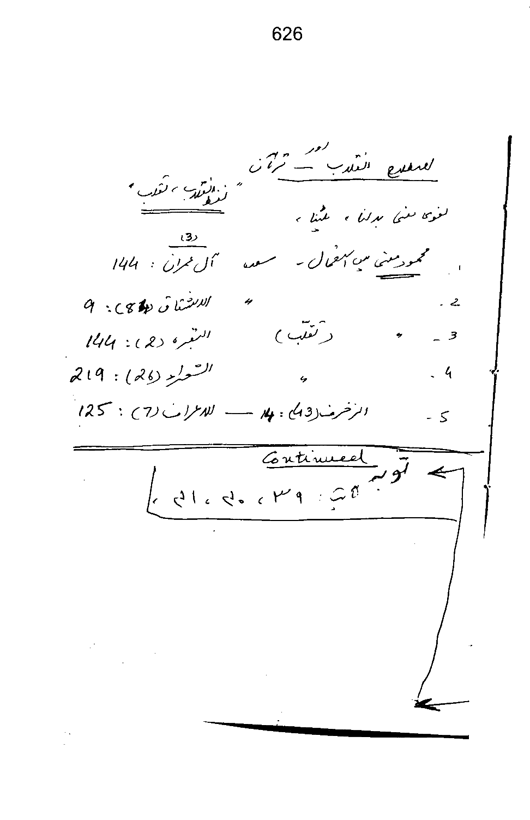 626
اصطلاح انقلاب اور — قرآن
"لفظ انقلاب، تقلب"
لغوی معنی بدلنا، پلٹنا،
1. محمود معنی میں استعمال - سورہ آل عمران (3) : 144
2. " الانشقاق (84) : 9
3 - " (تقلّب) البقرہ (2) : 144
4 . " الشعراء (26) : 219
5 - الزخرف (43) : 14 — الاعراف (7) : 125
Continued
توبہ
آیت : ۳۹، ۴۰، ۴۱،